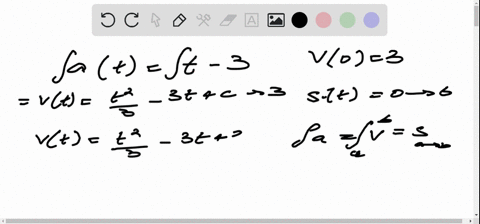 ∫a(t) = ∫t - 3
V(0) = 3
= v(t) = t²/3 - 3t + c → 3
s.(t) = 0 → 6
v(t) = t²/3 - 3t + 3
∫a = ∫ᵃᵇ v = s